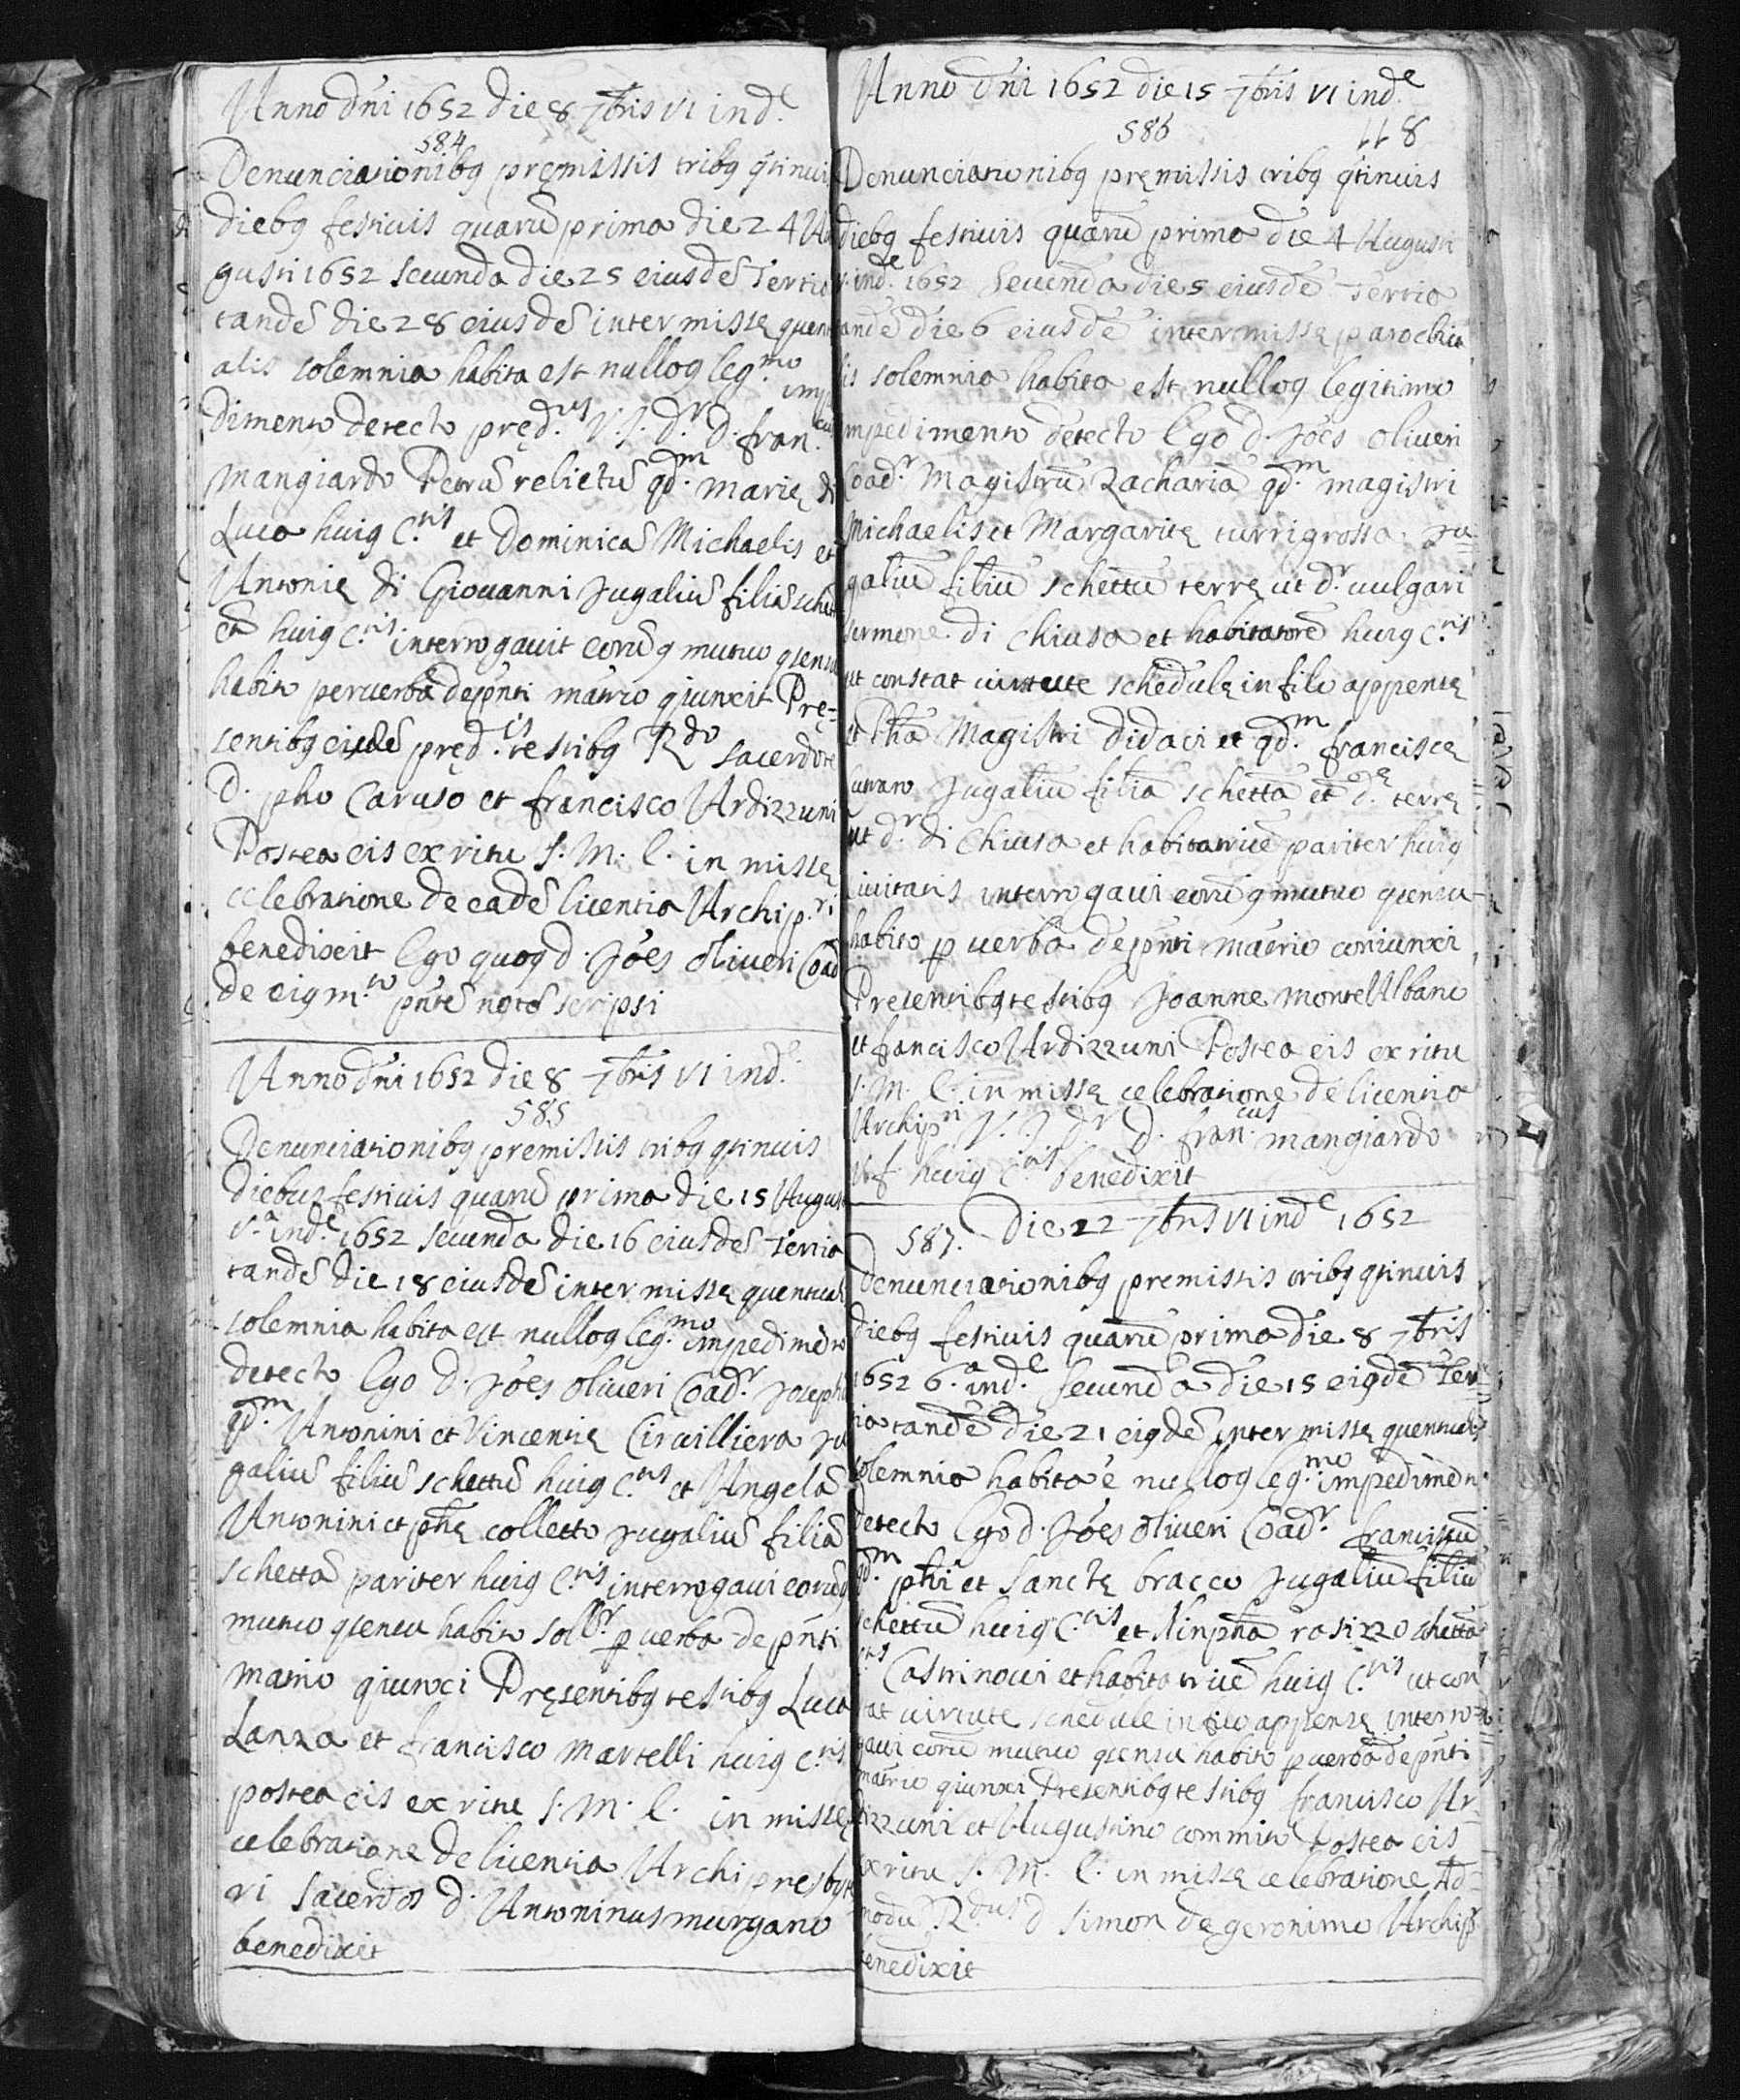 Anno dñi 1652 die 8 7bris VI ind.e
584
Denunciationibq premissis tribq qtinuis
diebq festiuis quarũ prima die 24 Au
gusti 1652 secunda die 25 eiusdẽ Tertia
tandẽ die 28 eiusdẽ inter missę quent
alis solemnia habita est nulloq leg.mo impe
dimento detecto pręd.us V.J.D.r D. fran.cus
mangiardo Petrũ relictũ qd.m Marię di
Luca huiq C.tis et Dominicã Michaelis et
Antonię di Giouanni Jugaliũ filiã schett
ã huiq C.tis interrogauit eorũq mutuo qsensu
habito per uerba de pñti mãtrio qiunxit Prę=
sentibq eisdẽ pręd.is testibq R.do sacerdote
D. pho Caruso et francisco Ardizzuni
Postea eis ex ritu S. M. E. in missę
celebratione de eadẽ licentia Archip.ri
benedixit Ego quoq d. Joẽs Oliueri Coad
de eiq m.to pñtẽ notã scripsi
Anno dñi 1652 die 8 7bris VI ind.e
585
Denunciationibq premissis tribq qtinuis
diebus festiuis quarũ prima die 15 August
V.a ind.e 1652 secunda die 16 eiusdẽ Tertia
tandẽ die 18 eiusdẽ inter missę quentual
solemnia habita est nulloq leg.mo impedimẽto
detecto Ego D. Joẽs Oliueri Coad.r Joseph
qd.m Antonini et Vincentię Circilliera Ju
galiũ filiũ schettũ huiq C.tis et Angelã
Antonini et phę colletto Jugaliũ filiã
schettã pariter huiq C.tis interrogaui eorũq
mutuo qsensu habito p uerba de pñti
matrio qiunxi Pręsentibq testibq Luca
Lanza et francisco Martelli huiq C.tis
postea eis ex ritu S. M. E. in missę
celebratione de licentia Archipresbyte
ri Sacerdos D. Antoninus murgano
benedixit
Anno dñi 1652 die 15 7bris VI ind.e
586 118
Denunciationibq pręmissis tribq qtinuis
diebq festiuis quarũ prima die 4 Augusti
V. ind.e 1652 Secunda die 5 eiusdẽ Tertia
andẽ die 6 eiusdẽ inter missę parochia
lis solemnia habita est nulloq legitimo
mpedimento detecto Ego d. Joẽs Oliueri
Coad.r Magistrũ Zachariã qd.m magistri
Michaelis et Margaritę turrigrossa Ju=
galiũ filiũ schettũ terrę ut d.r uulgari
sermone di Chiusa et habitatorẽ huiq C.tis
ut constat uirtute schedulę in filo appensę
et Phã Magistri Didaci et qd.m franciscę
Jugaliũ filiã schettã eiusdẽ d.ę terrę
ut d.r di Chiusa et habitatricẽ pariter huiq
Ciuitatis interrogaui eorũq mutuo qsensu
habito p uerba de pñti mãtrio coniunxi
Presentibq testibq Joanne monteAlbano
et francisco Ardizzuni Postea eis ex ritu
S. M. E. in missę celebratione de licentia
Archip.ri V. J. D.r D. fran.cus mangiardo
huiq C.tis benedixit
587. Die 22 7bris VI ind.e 1652
Denunciationibq premissis tribq qtinuis
diebq festiuis quarũ prima die 8 7bris
1652 6.a ind.e secunda die 15 eiqdẽ Ter
tia tandẽ die 21 eiqdẽ inter missę quentualis
solemnia habita ẽ nulloq leg.mo impedimẽn
detecto Ego d. Joẽs Oliueri Coad.r franciscũ
qd.m phi et Sanctę bracco Jugaliũ filiũ
schettũ huiq C.tis et Ninphã rasizzo schettã
C.tis Castrinoui et habitatricẽ huiq C.tis ut cons
tat uirtute schedule in filo appensę interro
gaui eorũ mutuo qsensu habito p uerba de pñti
mãtrio qiunxi Presentibq testibq francisco Ar=
dizzuni et Augustino commito Postea eis
ex ritu S. M. E. in missę celebratione Ad=
modũ R.dus d Simon de geronimo Archip
benedixit